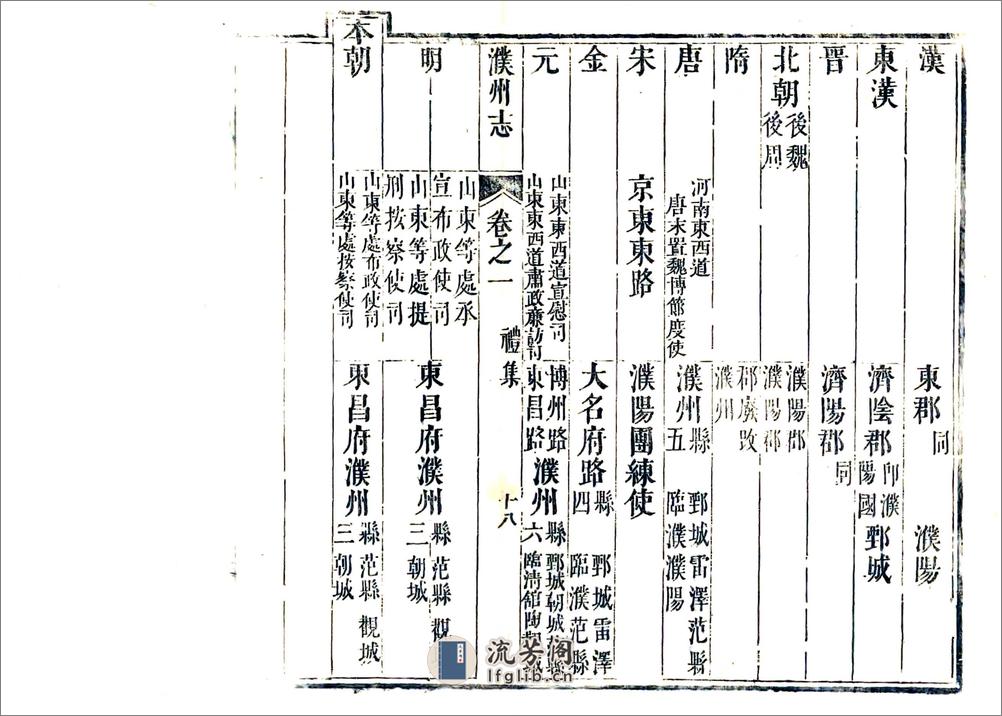 漢 東郡同 濮陽
東漢 濟陰郡 卽濮陽國 鄄城
晉 濟陽郡同
北朝 後魏 濮陽郡
後周 濮陽郡
隋 郡廢改濮州
唐 河南東西道 唐末置魏博節度使 濮州 縣五 鄄城 雷澤 范縣 臨濮 濮陽
宋 京東東路 濮陽團練使
金 大名府路 縣四 鄄城 雷澤 臨濮 范縣
元 山東東西道宣慰司 山東東西道肅政廉訪司 博州路 東昌路 濮州 縣六 鄄城 朝城 臨清 館陶
濮州志 卷之一 禮集 十八
明 山東等處承宣布政使司 山東等處提刑按察使司 東昌府濮州 縣三 范縣 觀 朝城
本朝 山東等處布政使司 山東等處按察使司 東昌府濮州 縣三 范縣 觀城 朝城
流芳阁
lfglib.cn